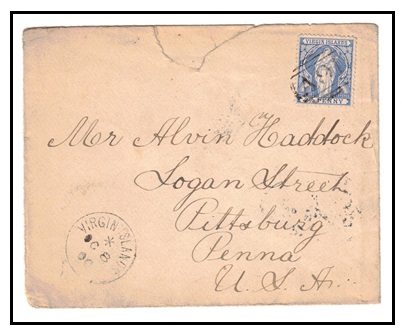 VIRGIN ISLANDS
PENNY
Mr Alvin Haddock
Logan Street
Pittsburg
Penna
U. S. A.
VIRGIN ISLANDS